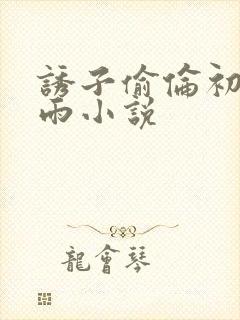 誘子偷倫初
雨小説
龍會琴